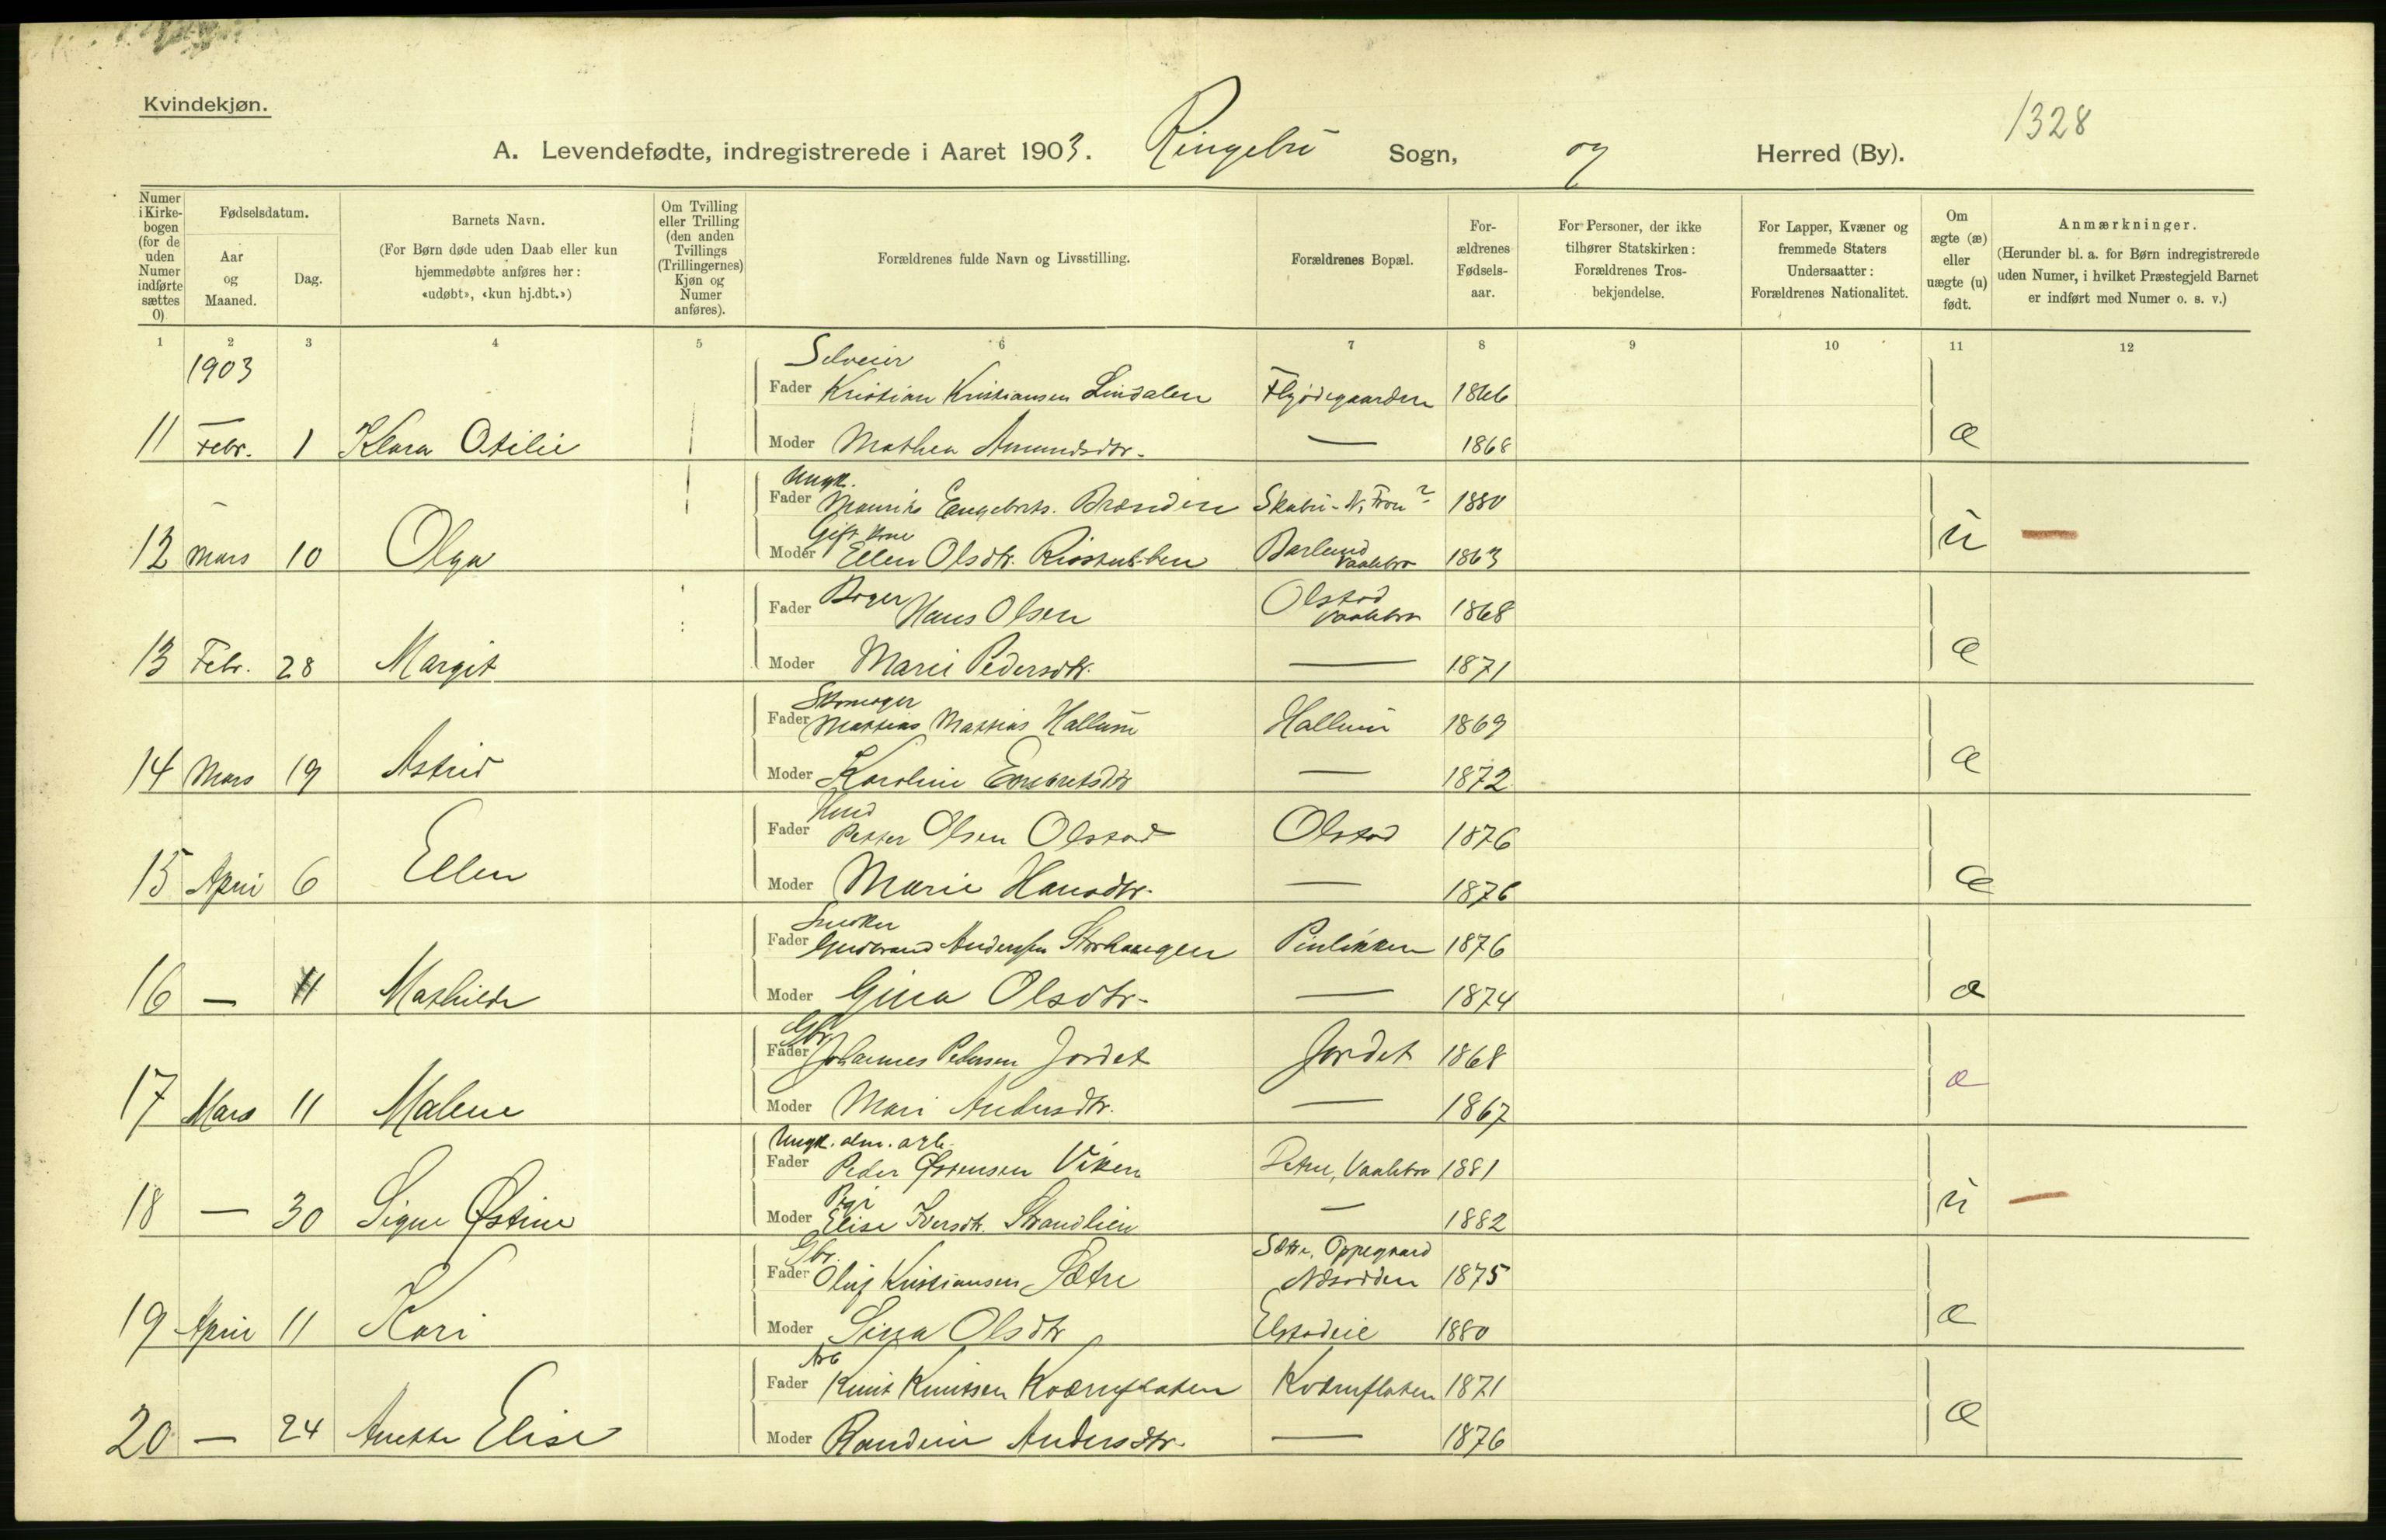 Kvindekjøn.
1328
A. Levendefødte, indregistrerede i Aaret 1903. Ringebu Sogn, og Herred (By).
Numer i Kirkebogen (for de uden Numer indførte sættes 0)
Fødselsdatum.
Aar og Maaned.
Dag.
Barnets Navn.
(For Børn døde uden Daab eller kun hjemmedøbte anføres her: «udøbt», «kun hj.dbt.»)
Om Tvilling eller Trilling (den anden Tvillings (Trillingernes) Kjøn og Numer anføres).
Forældrenes fulde Navn og Livsstilling.
Forældrenes Bopæl.
Forældrenes Fødselsaar.
For Personer, der ikke tilhører Statskirken: Forældrenes Trosbekjendelse.
For Lapper, Kvæner og fremmede Staters Undersaatter: Forældrenes Nationalitet.
Om ægte (æ) eller uægte (u) født.
Anmærkninger.
(Herunder bl. a. for Børn indregistrerede uden Numer, i hvilket Præstegjeld Barnet er indført med Numer o. s. v.)
1 2 3 4 5 6 7 8 9 10 11 12
1903
Selveier
Fader Kristian Kristiansen Lindalen Flyødegaarden 1866
11 Febr. 1 Klara Otilie Moder Mathea Amundsdtr. — 1868 æ
Ungk.
Fader Maurits Engebrets. Brænden Skabu - N. Fron ? 1880
Gift Kone
12 Mars 10 Olga Moder Ellen Olsdtr. Barlund Vaalebro 1863 u —
Fader Hans Olsen Olstad Vaalebro 1868
13 Febr. 28 Margit Moder Marie Pedersdtr. — 1871 æ
Skomager
Fader Mathias Mathias Hallum Hallum 1869
14 Mars 19 Astrid Moder Karoline Engebretsdtr — 1872 æ
Fader Petter Olsen Olstad Olstad 1876
15 April 6 Ellen Moder Marie Hansdtr. — 1876 æ
Snedker
Fader Gudbrand Anderssen Storhaugen 1876
16 — 11 Mathilde Moder Gina Olsdtr. — 1874 æ
Gbr.
Fader Johannes Pedersen Jordet Jordet 1868
17 Mars 11 Malene Moder Mari Andersdtr. — 1867 æ
Ungk. alm. arb.
Fader Peder Østensen Viken Vaalebro 1881
Pige
18 — 30 Signe Østine Moder Elise Iversdtr. Strandlien — 1882 u —
Gbr. Sætre, Oppegaard
Fader Oluf Kristiansen Sætre Næsodden 1875
19 April 11 Kari Moder Sina Olsdtr Elstadeie 1880 æ
Arb
Fader Knut Knutssen Kværnflaten Kværnflaten 1871
20 — 24 Anette Elise Moder Randine Andersdtr. — 1876 æ